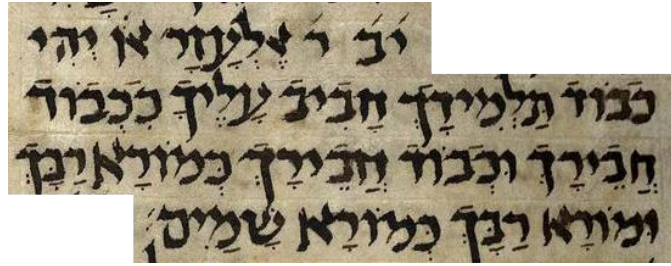 יב ר אֶלְעָזָר או יְהִי
כְבוֹד תַלְמִידָךְ חָבִיב עָלֶיךָ כִכְבוֹד
חֲבֵירָךְ וּכְבוֹד חֲבֵירָךְ כְמוֹרָא רַבָּךְ
וּמוֹרָא רַבָּךְ כְמוֹרָא שָׁמַיִם׃